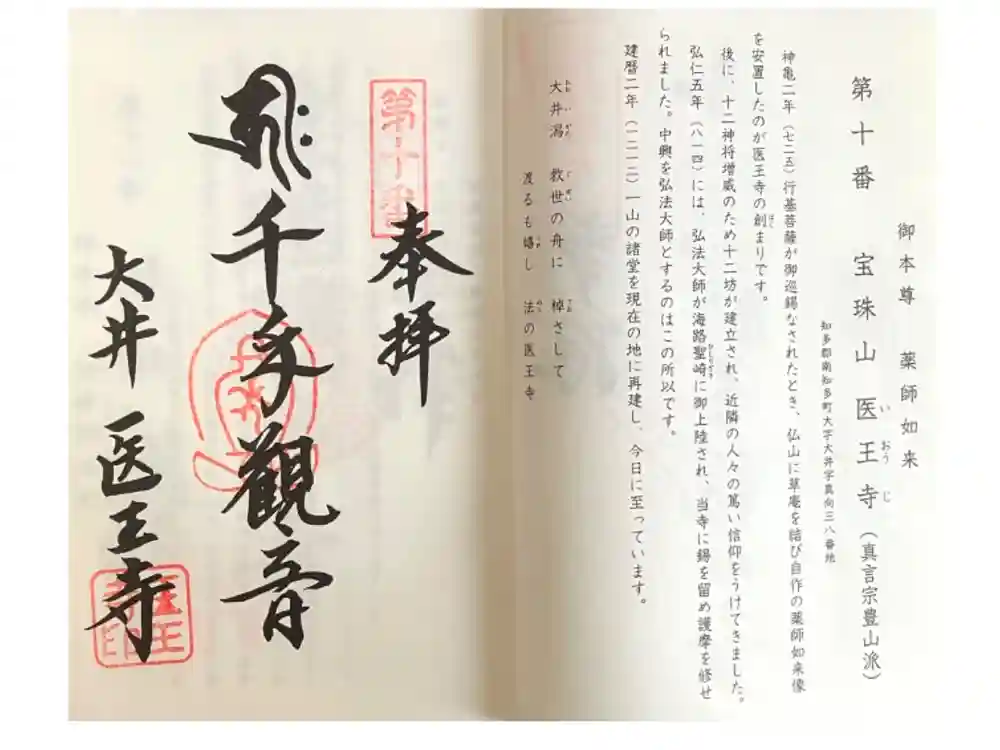 御本尊　薬師如来
第十番　宝珠山　医王寺（真言宗豊山派）
いおうじ
知多郡南知多町大字大井字真向三八番地
神亀二年（七二五）行基菩薩が御巡錫なされたとき、仏山に草庵を結び自作の薬師如来像
を安置したのが医王寺の創まりです。
はじ
後に、十二神将増威のため十二坊が建立され、近隣の人々の篤い信仰をうけてきました。
弘仁五年（八一四）には、弘法大師が海路聖崎に御上陸され、当寺に錫を留め護摩を修せ
られました。中興を弘法大師とするのはこの所以です。
建暦二年（一二一二）一山の諸堂を現在の地に再建し、今日に至っています。
大井潟　救世の舟に　棹さして
渡るも嬉し　法の医王寺
第十番
奉拝
千手觀音
大井　医王寺
医王寺印